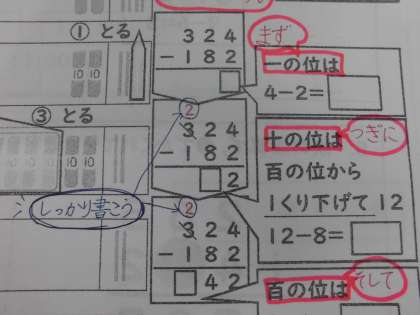 ① とる
324
-182
まず
一の位は
4-2=
10 10
③ とる
2
324
-182
2
十の位は
つぎに
百の位から
1くり下げて 12
12-8=
10 10
しっかり書こう
2
324
-182
42
百の位は
そして